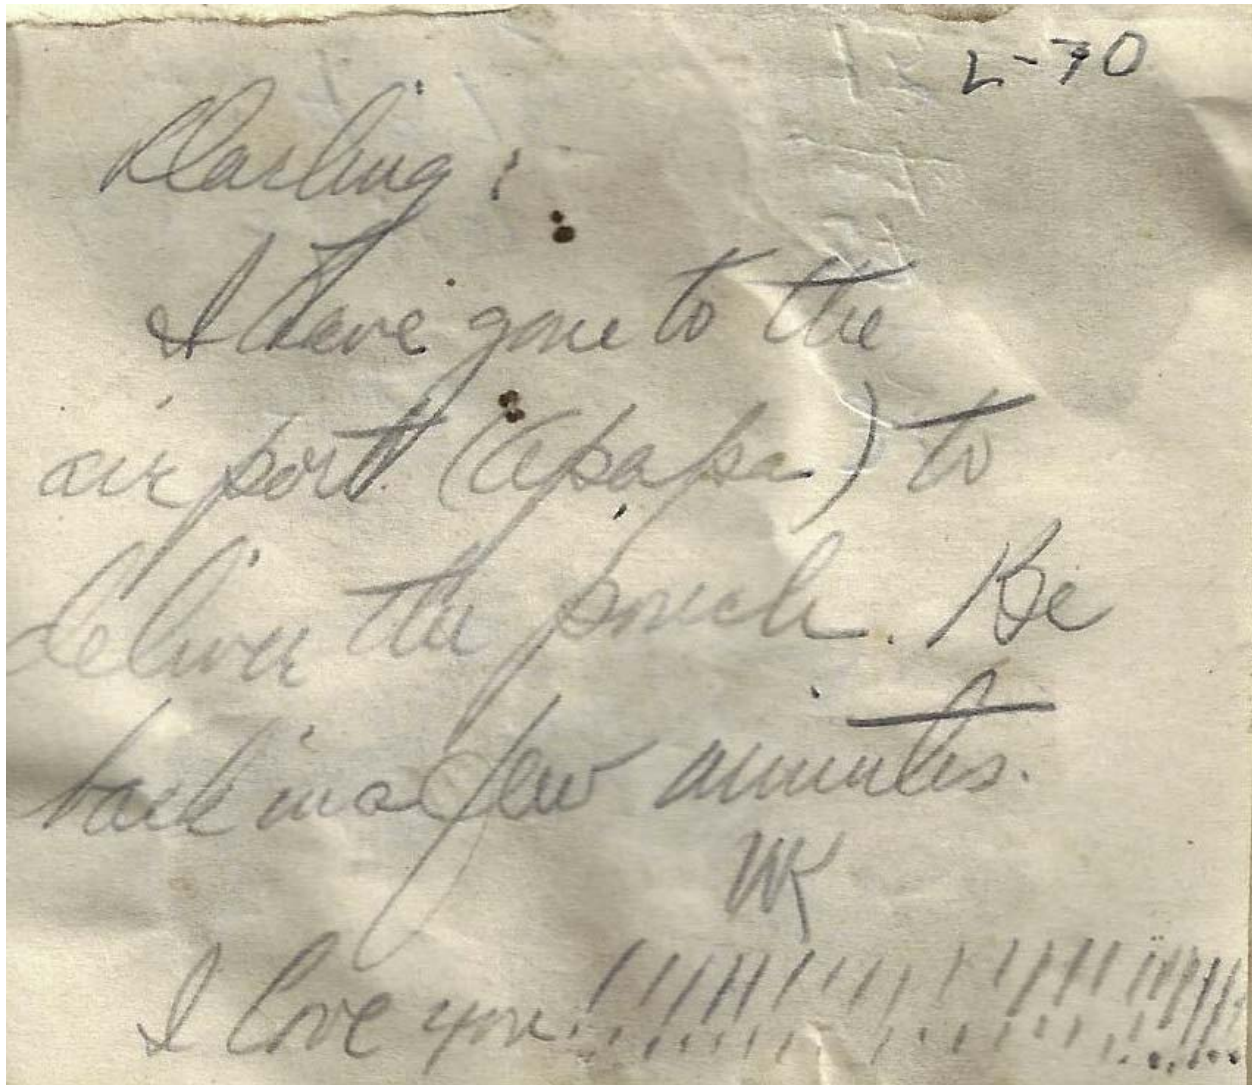 L-70
Darling:
I have gone to the
airport (apapa) to
deliver the pouch. Be
back in a few minutes.
WK
I love you!!!!!!!!!!!!!!!!!!!!!!!!